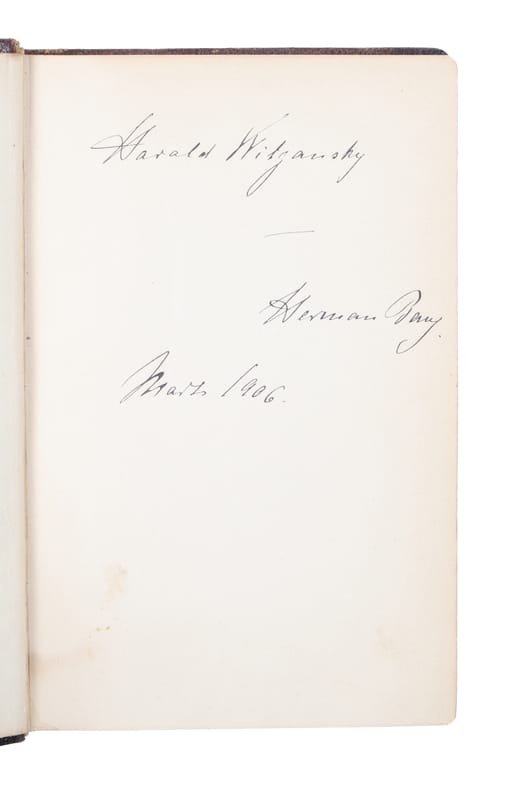 Harald Witzansky
—
Herman Bang.
Marts 1906.